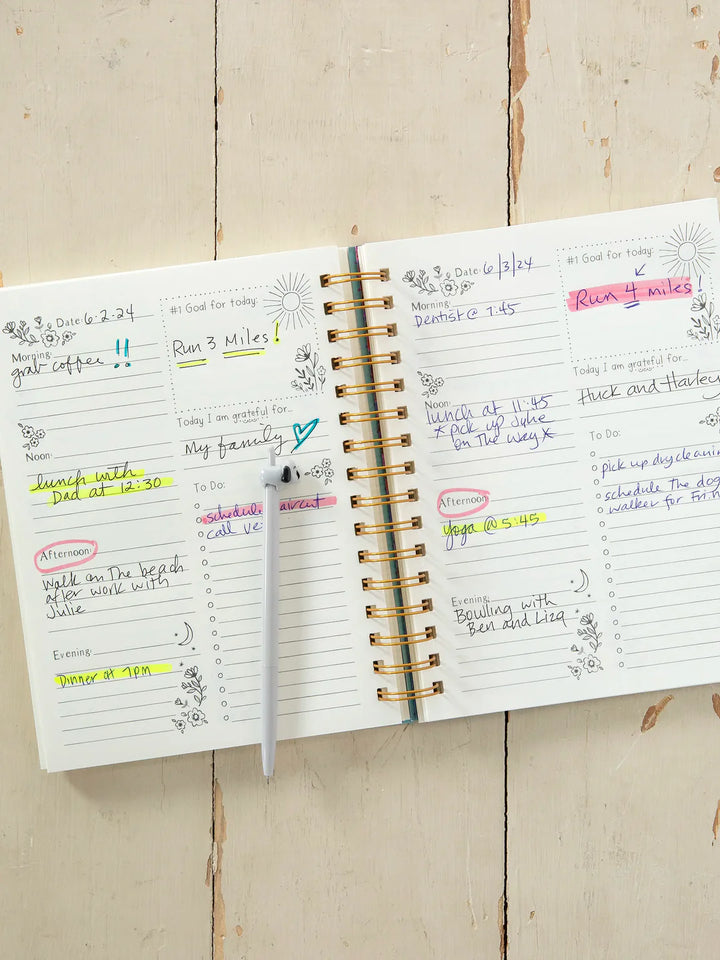 Date: 6.2.24
#1 Goal for today:
Run 3 Miles!
Morning:
grab coffee !!
Today I am grateful for...
My family
Noon:
lunch with
Dad at 12:30
To Do:
schedule haircut
call
Afternoon:
walk on The beach
after work with
Julie
Evening:
Dinner at 7pm
Date: 6/3/24
#1 Goal for today:
Run 4 miles!
Morning:
Dentist @ 7:45
Today I am grateful for...
Huck and Harley
Noon:
lunch at 11:45
* pick up Julie
on The way *
To Do:
pick up dry
schedule The dog
walker for Fri.
Afternoon:
Yoga @ 5:45
Evening:
Bowling with
Ben and Liza